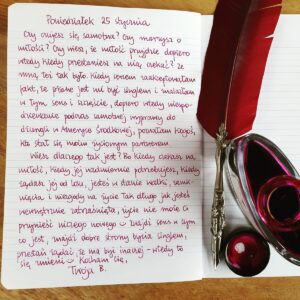 Poniedziałek 25 stycznia
Czy czujesz się samotna? Czy marzysz o
miłości? Czy wiesz, że miłość przyjdzie dopiero
wtedy kiedy przestaniesz na nią czekać? Ze
mną też tak było kiedy sama zaakceptowałam
fakt, że pisane jest mi być singlem i znalazłam
w tym sens i szczęście, dopiero wtedy niespo-
dziewanie podczas samotnej wyprawy do
dżungli w Ameryce Środkowej, poznałam kogoś,
kto stał się moim życiowym partnerem.
Wiesz dlaczego tak jest? Bo kiedy czekasz na
miłość, kiedy jej nadmiernie potrzebujesz, kiedy
żądasz jej od losu, jesteś w stanie walki,
i niezgody na życie. Tak długo jak jesteś
wewnętrznie życie nie może Ci
przynieść niczego nowego Znajdź sens w tym
co jest, znajdź dobre strony bycia singlem,
przestań żądać, że ma być inaczej – wtedy to
się zmieni Kocham Cię,
Twoja B.